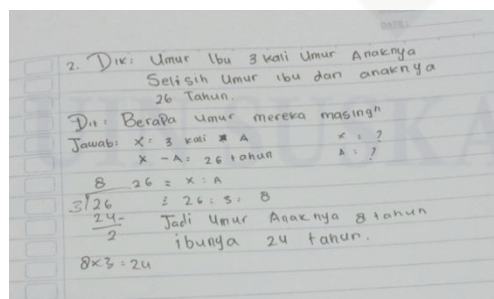 2. Dik: Umur Ibu 3 kali Umur Anaknya
Selisih Umur ibu dan anaknya
26 Tahun.
Dit: Berapa umur mereka masing"
Jawab: x = 3 kali A x = ?
x - A = 26 tahun A = ?
8 26 = x : A
3 26 = 26 : 3 = 8
24 - Jadi Umur Anaknya 8 tahun
2 ibunya 24 tahun.
8 x 3 = 24